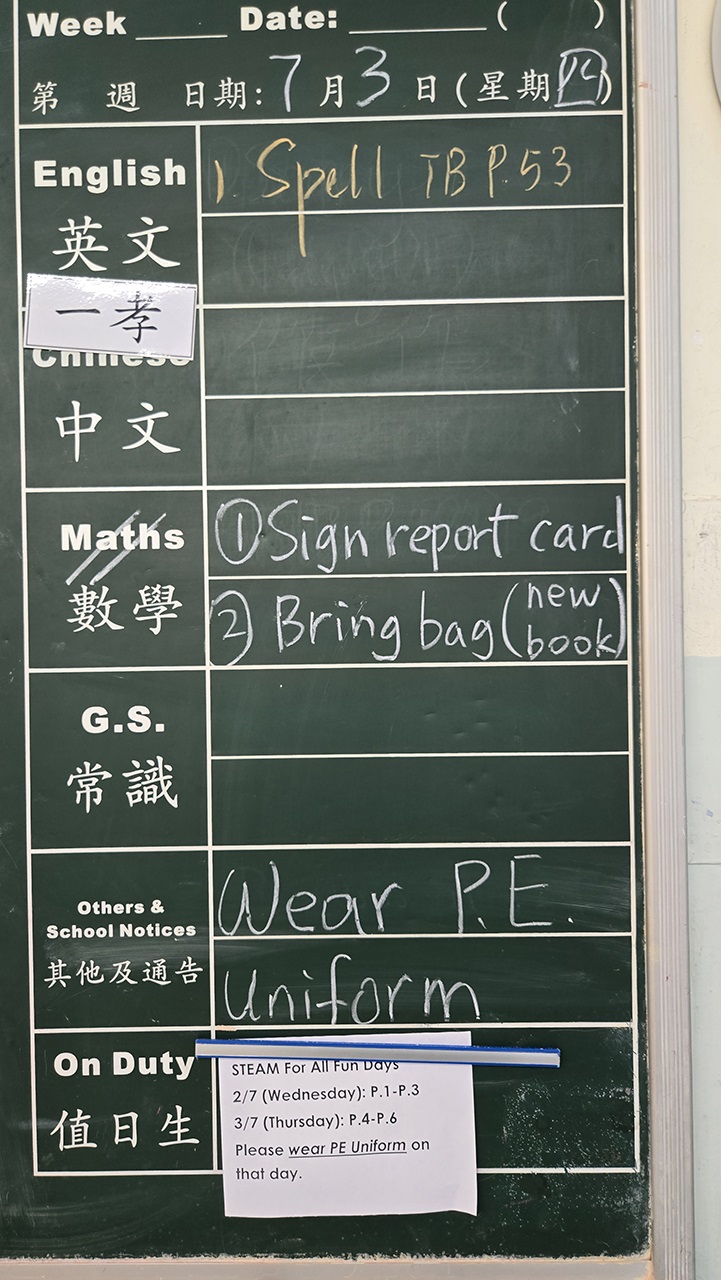 Week _____ Date: _________ ( )
第 週 日期: 7 月 3 日 (星期 四)
English 1. Spell TB P.53
英文
一孝
Chinese
中文
Maths ① Sign report card
數學 ② Bring bag (new book)
G.S.
常識
Others & School Notices
其他及通告
Wear P.E.
Uniform
On Duty
值日生
STEAM For All Fun Days
2/7 (Wednesday): P.1-P.3
3/7 (Thursday): P.4-P.6
Please wear PE Uniform on
that day.